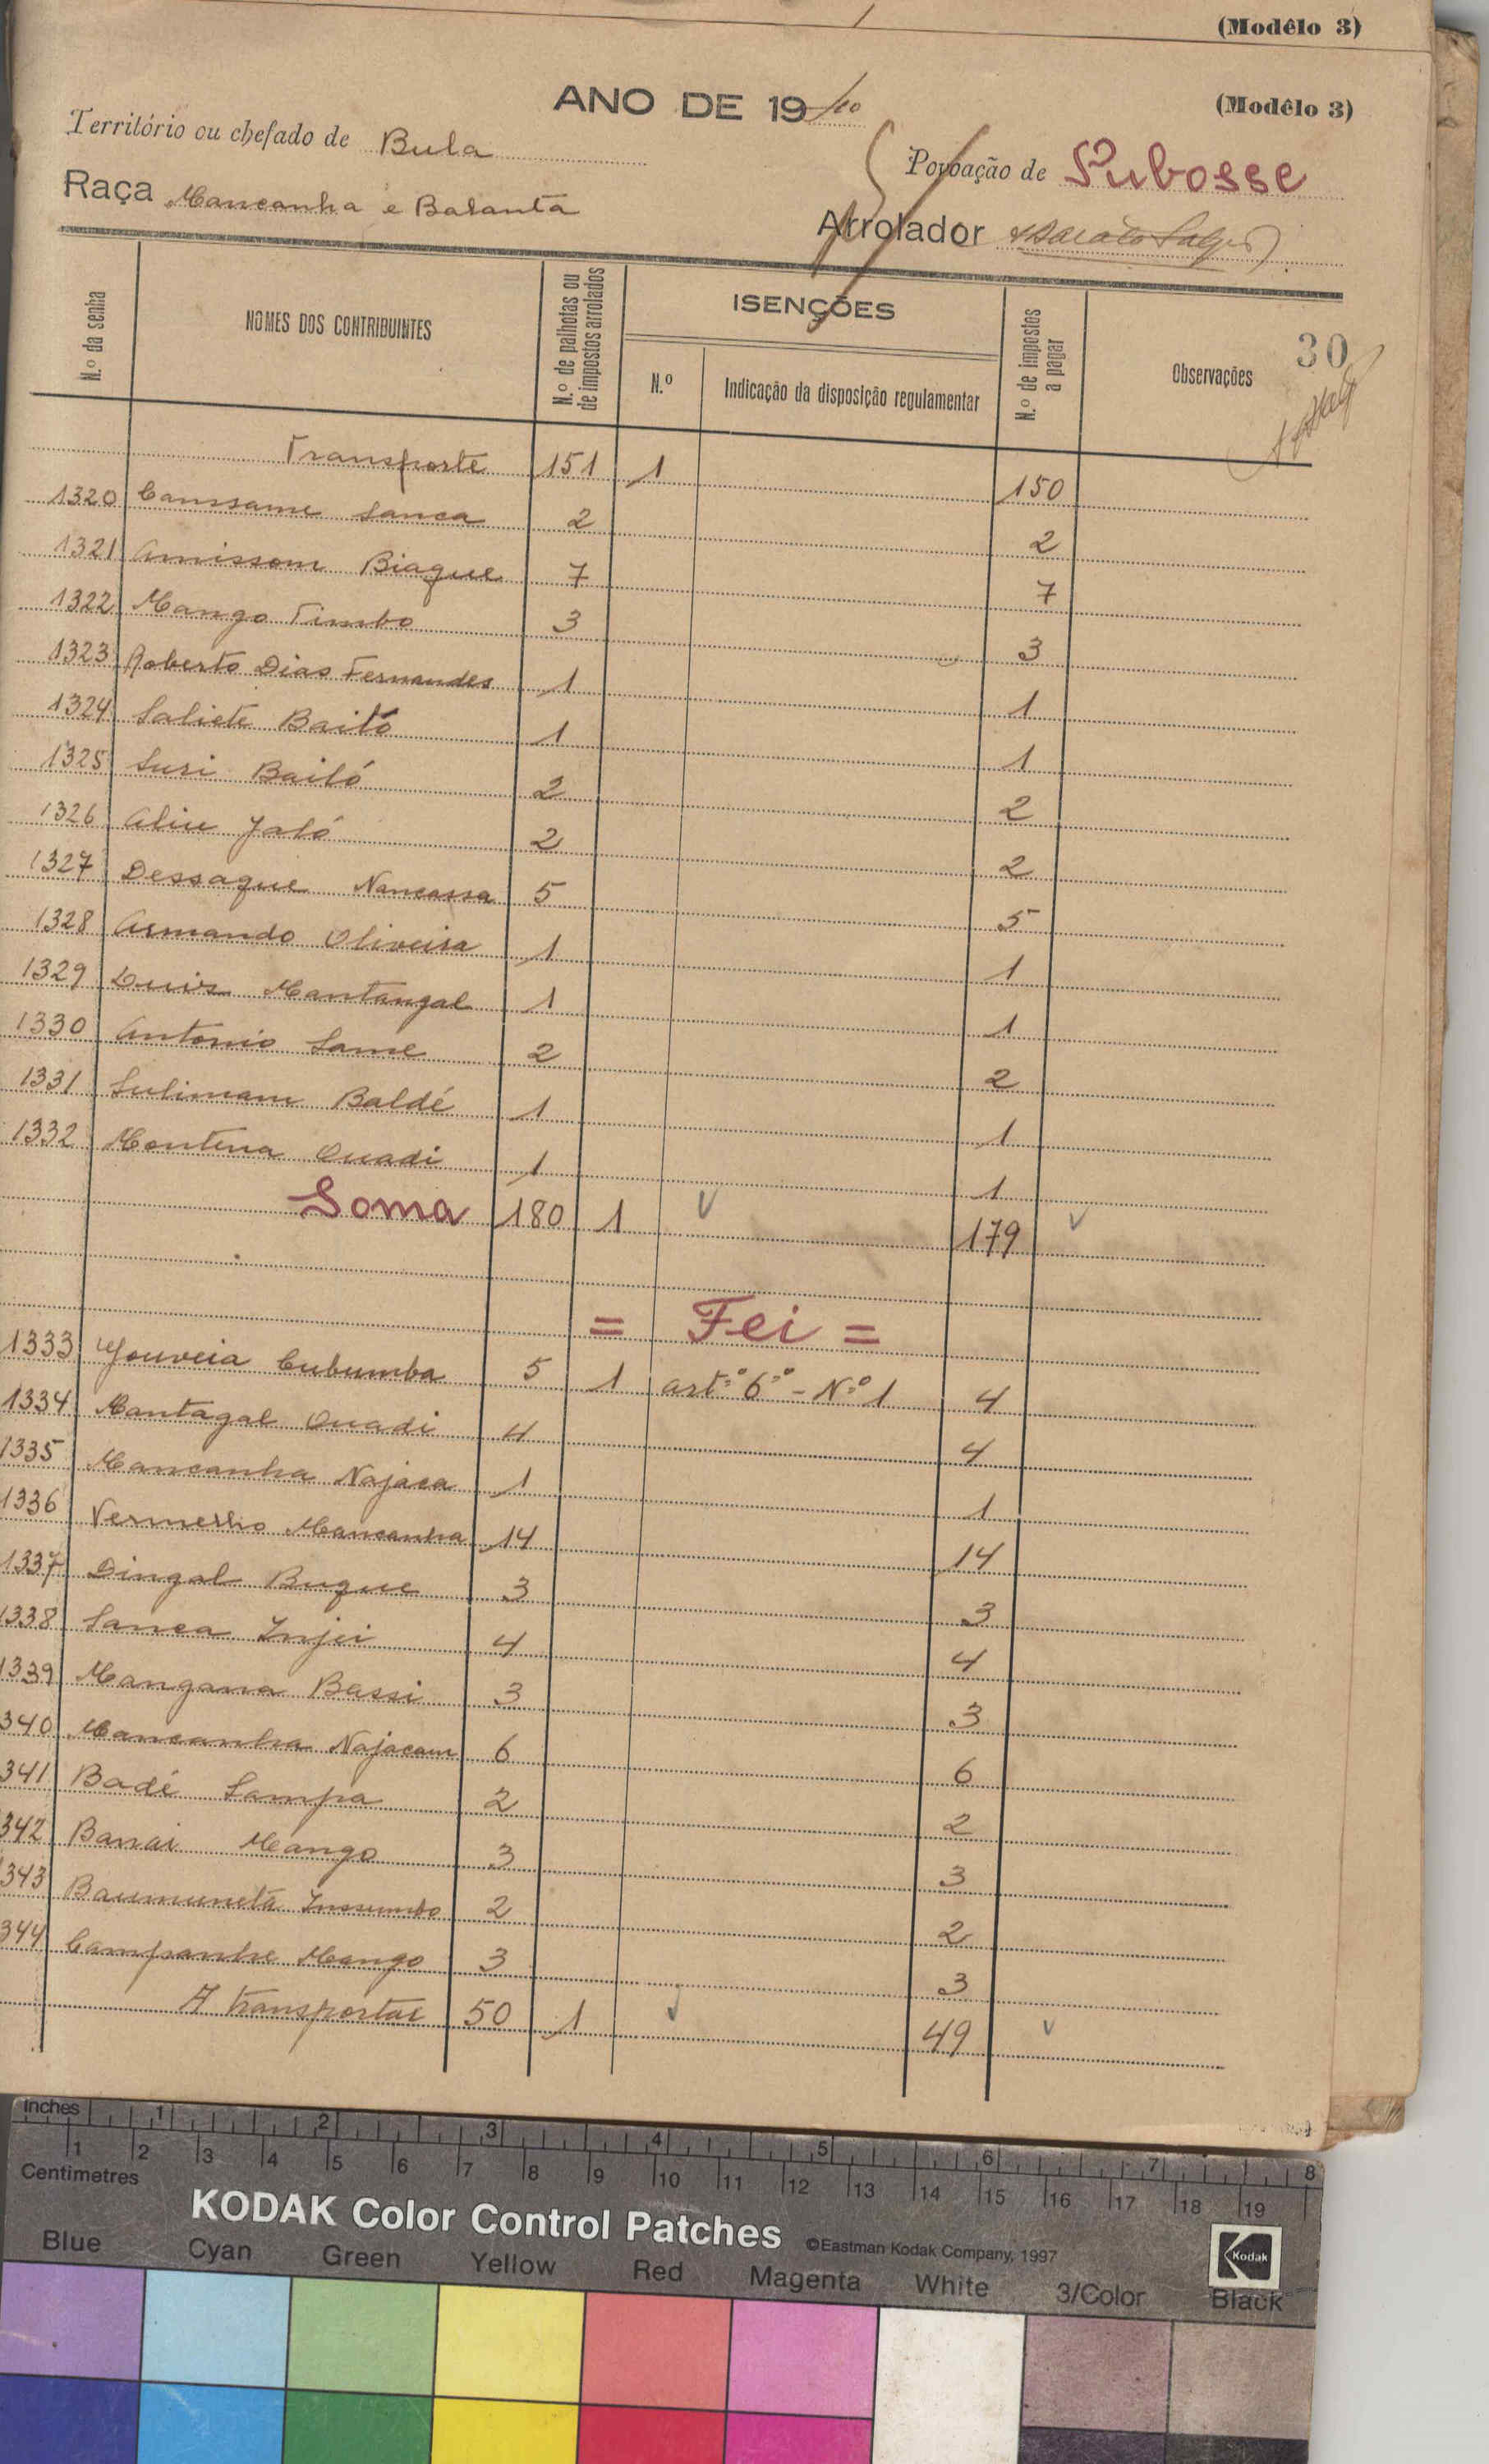 (Modêlo 3)
ANO DE 19
(Modêlo 3)
Território ou chefado de Bula
Povoação de Pubosse
Raça Mancanha e Balanta
Arrolador
N.º da senha
NOMES DOS CONTRIBUINTES
N.º de palhotas ou de impostos arrolados
ISENÇÕES
N.º
Indicação da disposição regulamentar
N.º de impostos a pagar
Observações
30
Transporte 151 1 150
1320 Canssame Sanca 2 2
1321 Amissom Biague 7 7
1322 Mango Timbo 3 3
1323 Roberto Dias Fernandes 1 1
1324 Saliete Bailó 1 1
1325 Suri Bailó 2 2
1326 Aliu Jaló 2 2
1327 Dessaque Nancassa 5 5
1328 Armando Oliveira 1 1
1329 Luis Mantangal 1 1
1330 Antonio Same 2 2
1331 Sulimam Baldé 1 1
1332 Montena Quadi 1 1
Soma 180 1 179
= Fei =
1333 Gouveia Cubumba 5 1 artº 6º - Nº 1 4
1334 Mantagal Quadi 4 4
1335 Mancanha Najaca 1 1
1336 Vermelho Mancanha 14 14
1337 Dingal Buque 3 3
1338 Sanca Injei 4 4
1339 Mangana Bassi 3 3
340 Mancanha Najacam 6 6
341 Badé Sampa 2 2
342 Banai Mango 3 3
343 Baumunetá Inssumbo 2 2
344 Campanhe Mango 3 3
A transportar 50 1 49
Inches 1 2 3 4 5 6 7 8
1 2 3 4 5 6 7 8 9 10 11 12 13 14 15 16 17 18 19
Centimetres
KODAK Color Control Patches ©Eastman Kodak Company, 1997
Kodak
Blue Cyan Green Yellow Red Magenta White 3/Color Black